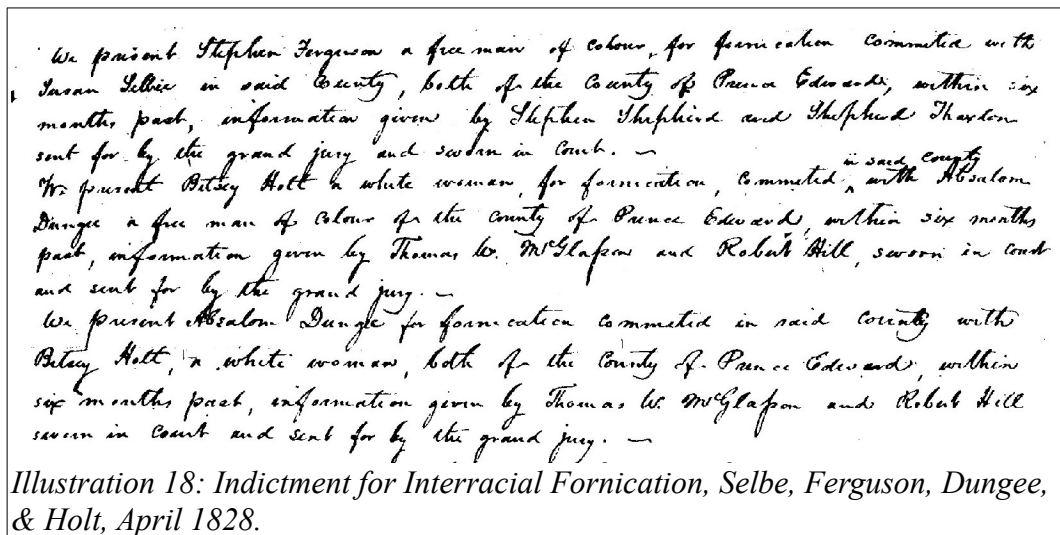 We present Stephen Ferguson a free man of colour, for fornication commited with
Susan Selbie in said County, both of the County of Prince Edward, within six
months past, information given by Stephen Shepherd and Shepherd
sent for by the grand jury and sworn in Court. —
in said county
We present Betsey Holt a white woman, for fornication, commited ^ with Absalom
Dungee a free man of colour of the county of Prince Edward, within six months
past, information given by Thomas W. McGlasson and Robert Hill, sworn in court
and sent for by the grand jury. —
We present Absalom Dungee for fornication commited in said county with
Betsey Holt, a white woman, both of the County of Prince Edward, within
six months past, information given by Thomas W. McGlasson and Robert Hill
sworn in Court and sent for by the grand jury. —
Illustration 18: Indictment for Interracial Fornication, Selbe, Ferguson, Dungee,
& Holt, April 1828.